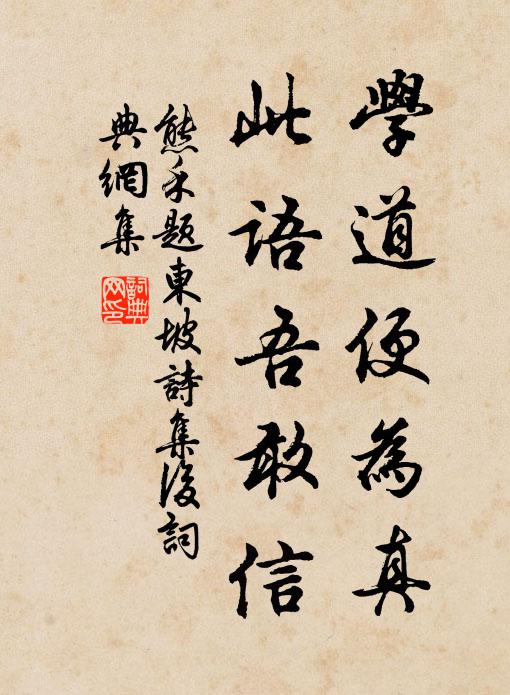 學道便為真
此語吾敢信
熊禾題東坡詩集後詞
典網集
詞典
网印